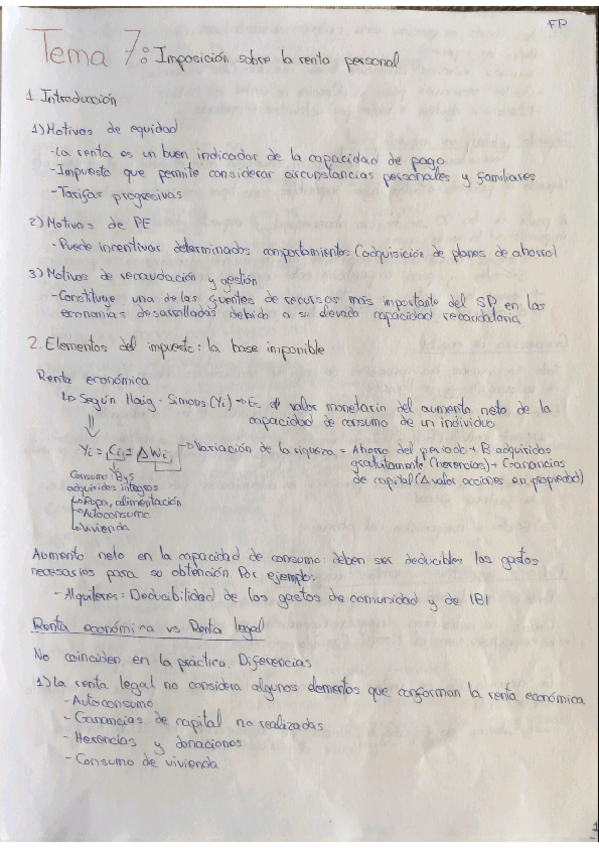 FP
Tema 7: Imposición sobre la renta personal
1. Introducción
1) Motivos de equidad
- La renta es un buen indicador de la capacidad de pago
- Impuesto que permite considerar circunstancias personales y familiares
- Tarifas progresivas
2) Motivos de PE
- Puede incentivar determinados comportamientos (adquisición de planes de ahorro)
3) Motivos de recaudación y gestión
- Constituye una de las fuentes de recursos más importante del SP en las
economías desarrolladas debido a su elevada capacidad recaudatoria
2. Elementos del impuesto: la base imponible
Renta económica
↳ Según Haig-Simons (Yi) → Es el valor monetario del aumento neto de la
capacidad de consumo de un individuo
Yi = Ci + ΔWi → Variación de la riqueza = Ahorro del periodo + B adquiridos
gratuitamente (herencias) + Ganancias
de capital (Δ valor acciones en propiedad)
Consumo: B y S
adquiridos íntegros
↳ Ropa, alimentación
↳ Autoconsumo
↳ Vivienda
Aumento neto en la capacidad de consumo: deben ser deducibles los gastos
necesarios para su obtención. Por ejemplo:
- Alquileres: Deducibilidad de los gastos de comunidad y de IBI
Renta económica vs Renta legal
No coinciden en la práctica. Diferencias
1) La renta legal no considera algunos elementos que conforman la renta económica
- Autoconsumo
- Ganancias de capital no realizadas
- Herencias y donaciones
- Consumo de vivienda
1